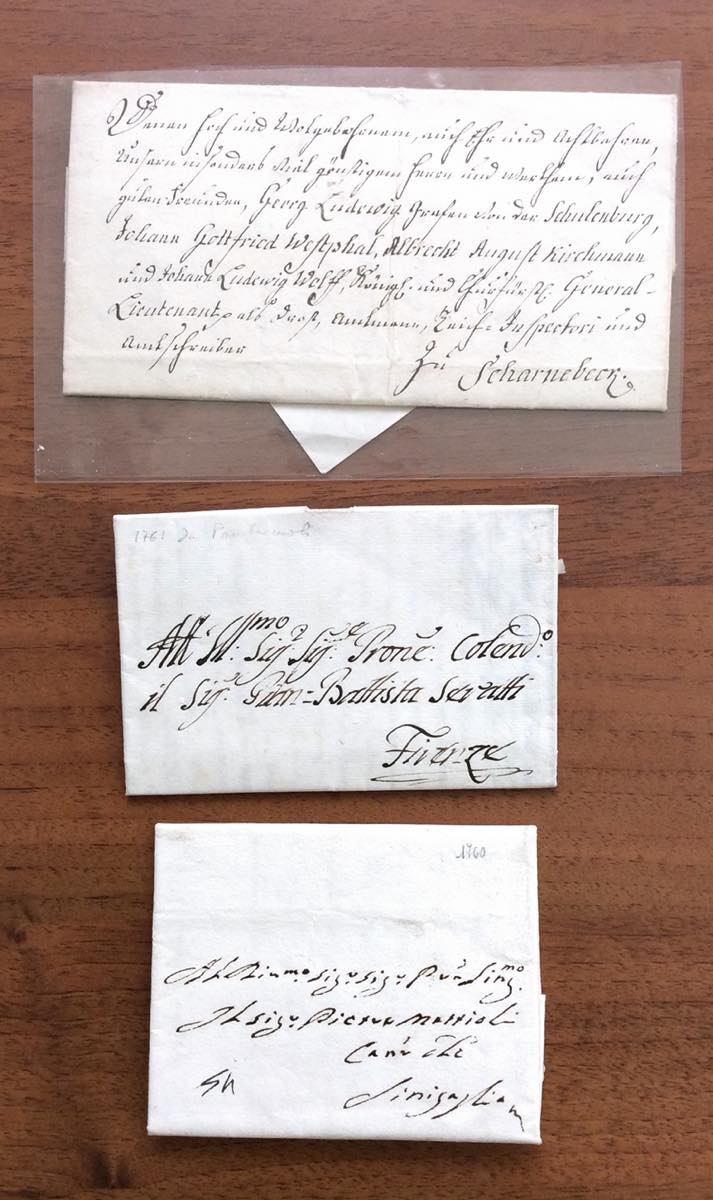 Denen Hoch und Wolgebohrnem, auch Ehr und Achtbahren,
Unsern insonders Viel günstigem Herrn und Werthem, auch
guten Freunden, Georg Ludewig Grafen von der Schulenburg,
Johann Gottfried Westphal, Albrecht August Kirchmann
und Johann Ludewig Wolff, Königl. und Churfürstl. General-
Lieutenant, als Drost, Amtmann, Teich-Inspectori und
Amtschreiber
Zu Scharnebeck.
1761 Da
All Ill:mo Sigr Sigr Prone: Colendo:
il Sigr: Gian=Battista Seratti
Firenze
1760
Al Riumo Sigr Sigr Prn Sing.mo
Il Sigr Pietro Mattioli
Sinigaglia